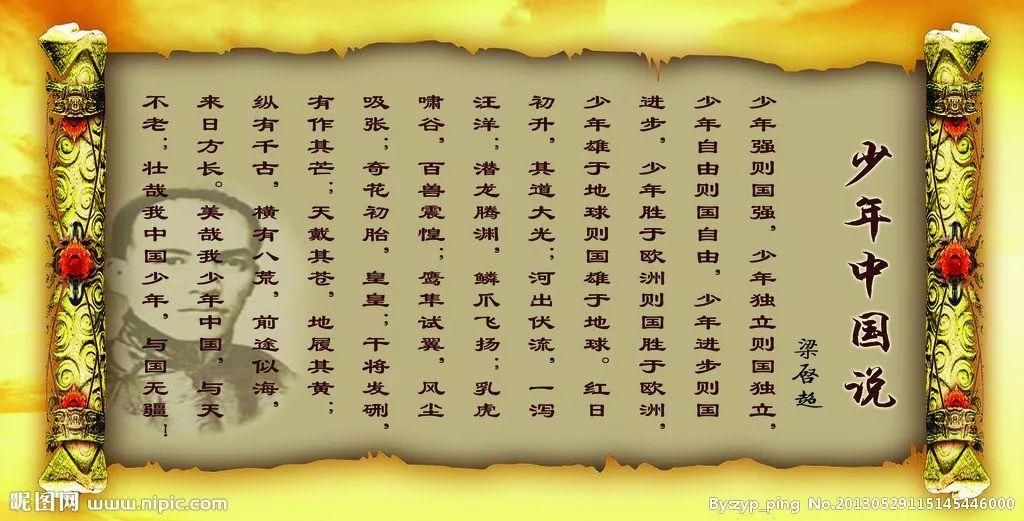 少年中国说
梁启超
少年强则国强，少年独立则国独立，
少年自由则国自由，少年进步则国
进步，少年胜于欧洲则国胜于欧洲，
少年雄于地球则国雄于地球。红日
初升，其道大光；河出伏流，一泻
汪洋；潜龙腾渊，鳞爪飞扬；乳虎
啸谷，百兽震惶；鹰隼试翼，风尘
吸张；奇花初胎，皇皇；干将发硎，
有作其芒；天戴其苍，地履其黄；
纵有千古，横有八荒，前途似海，
来日方长。美哉我少年中国，与天
不老；壮哉我中国少年，与国无疆！
昵图网 www.nipic.com
By:zyp_ping No.20130529115145446000